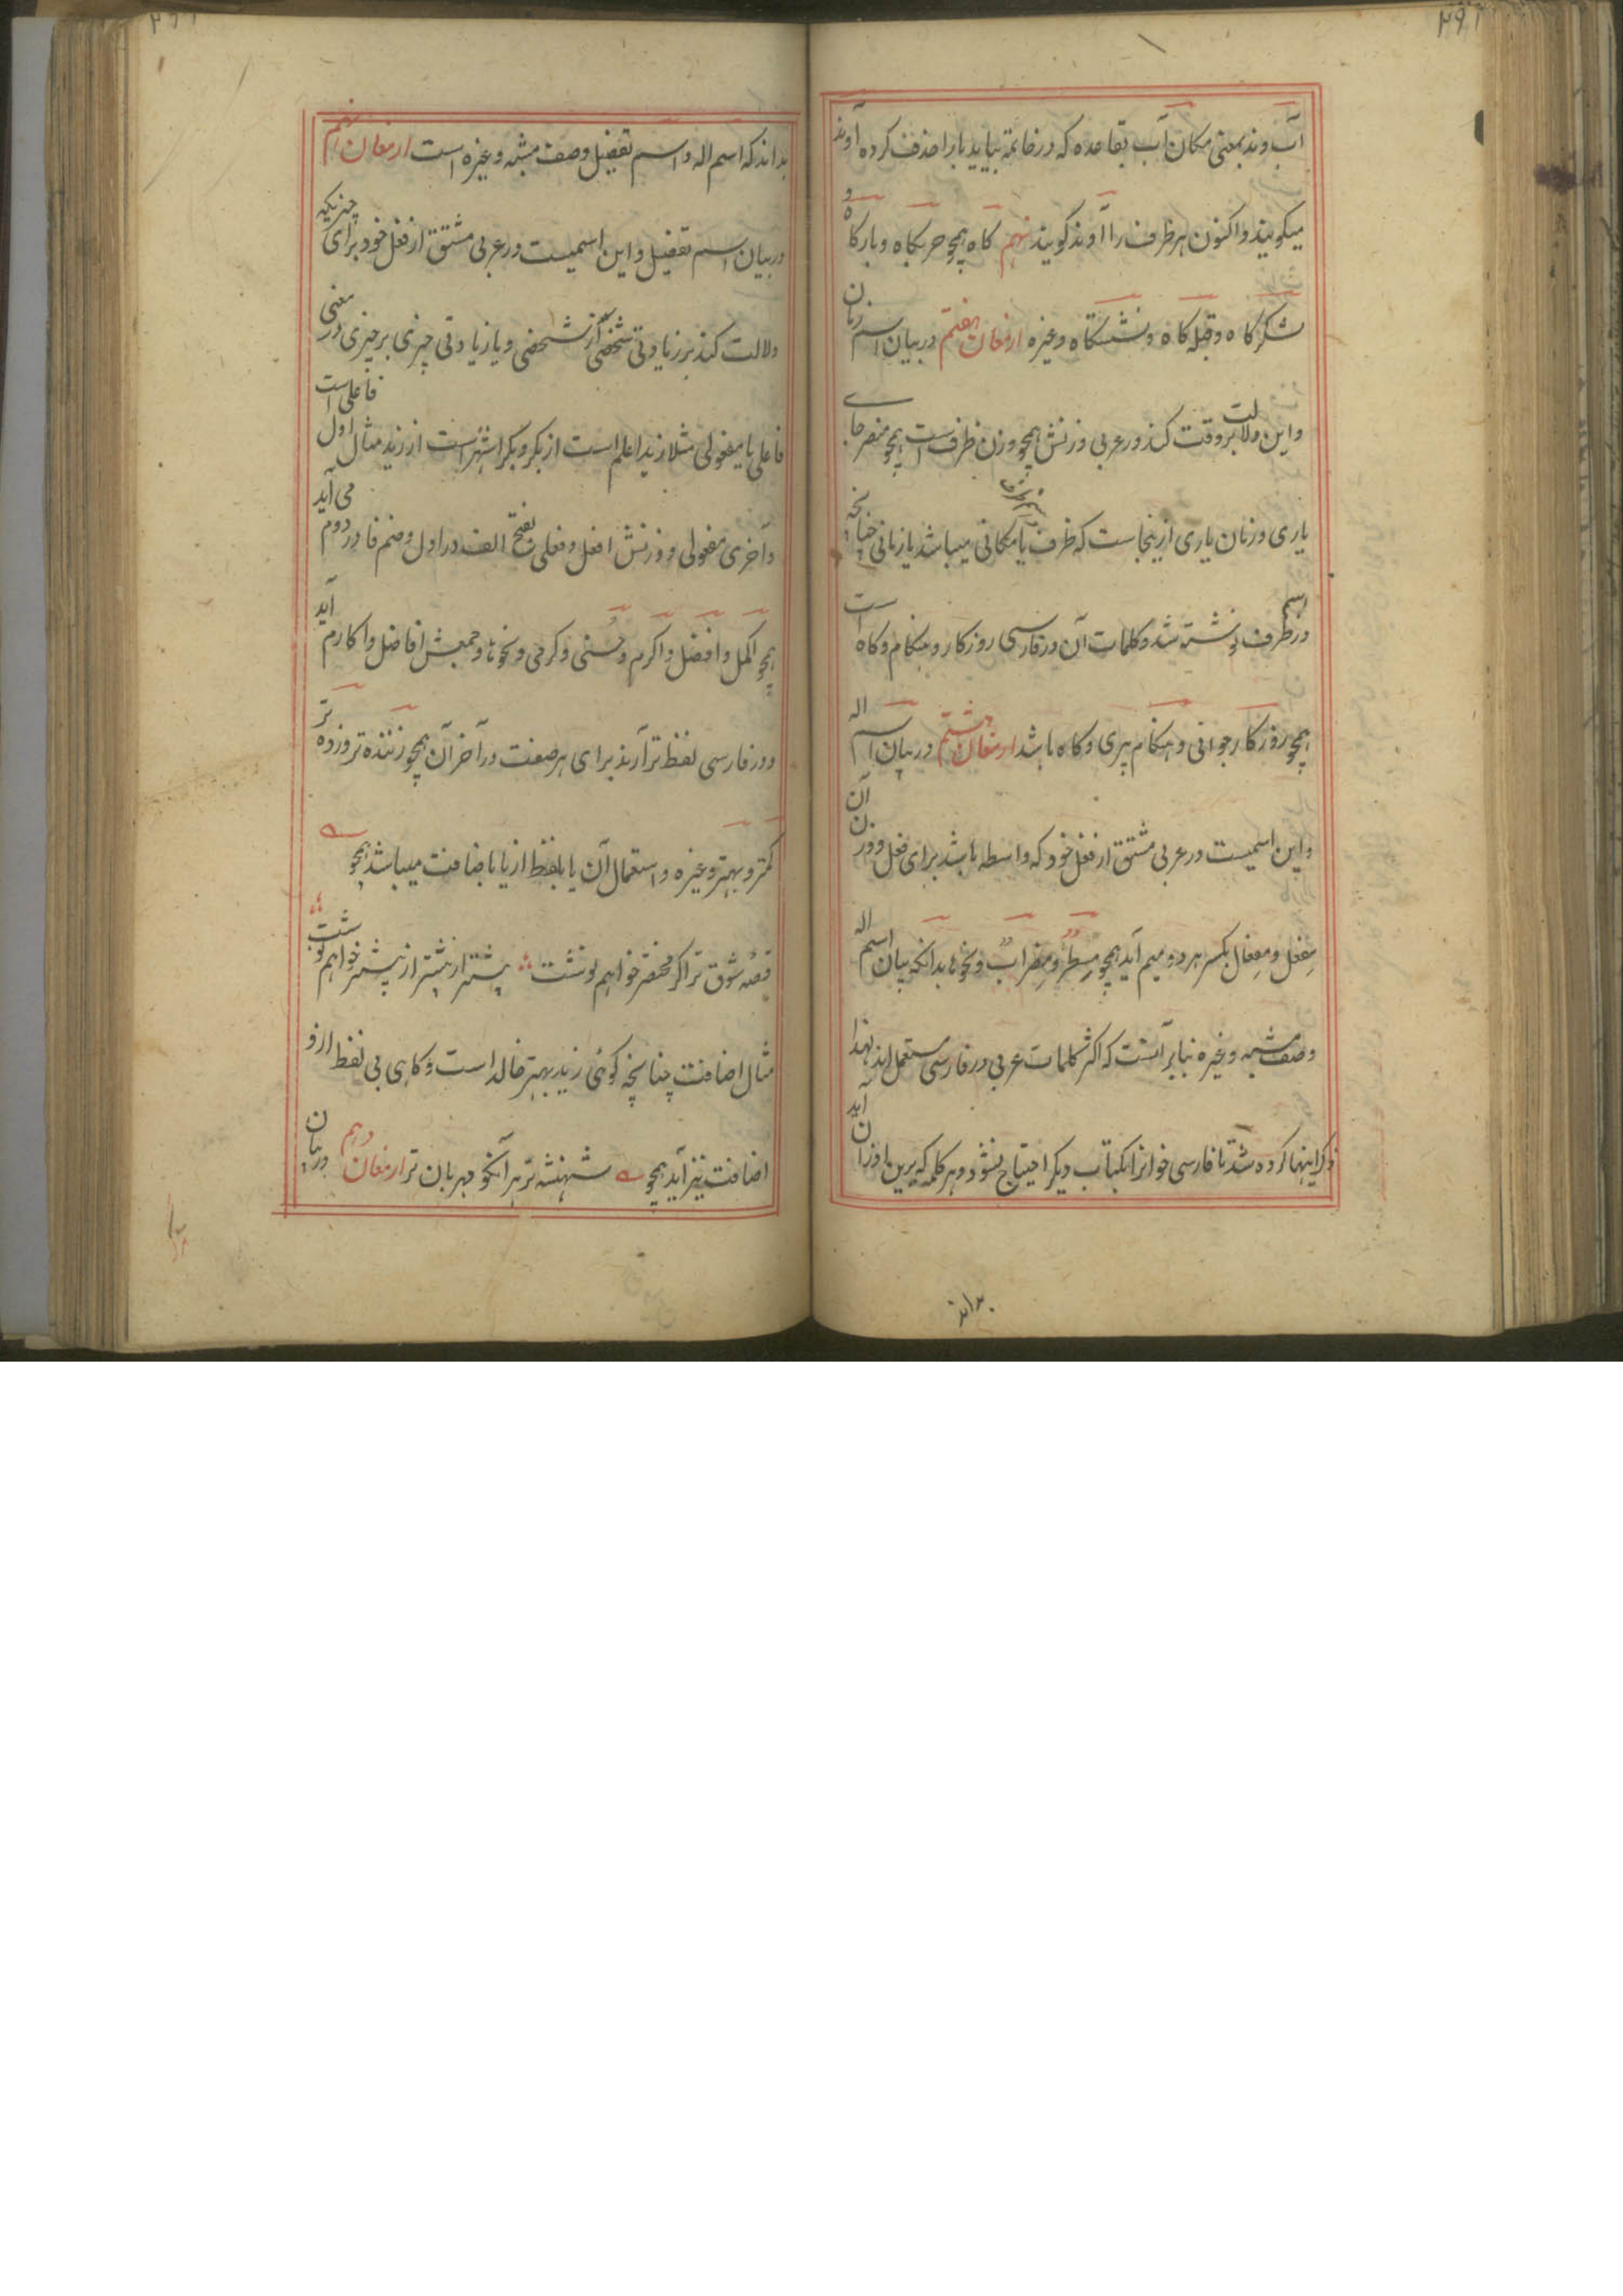 آب وند بمعنی مکان آب بقاعده که در خاتمه بیاید بارا حذف کرده آوند
میکویند و اکنون هر ظرف را آوند کویند نهم کاه همچو حربکاه و بارکاه و
شکرکاه و قبله کاه و نشستکاه و غیره ارمغان هفتم در بیان اسم زمان
و این دلالت بر وقت کند در عربی وزنش همچو وزن ظرف است همچو منصر جای
یاری و زمان یاری ازینجاست که ظرف یا مکانی میباشد یا زمانی چنانچه
در اسم ظرف نوشته شد و کلمات آن در فارسی روزکار و هنکام و کاه است
همچو روزکار جوانی و هنکام پیری و کاه باشد ارمغان هشتم در بیان اسم اله
و این اسمیست در عربی مشتق از فعل خود که واسطه باشد برای فعل و وزن آن
مِفعل و مِفعال بکسر هر دو میم آید همچو مِسطر و مِضراب و نحوها بدانکه بیان اسم اله
وصف مشبه و غیره بنابر آنست که اکثر کلمات عربی در فارسی مستعمل اند لهذا
ذکر اینها کرده شد تا فارسی خوانرا بکتاب دیکر احتیاج نشود و هر کلمه که برین اوزان آید
بداند
بداند که اسم اله و اسم تفضیل وصف مشبه و غیره است ارمغان نهم
در بیان اسم تفضیل و این اسمیست در عربی مشتق از فعل خود برای چیزیکه
دلالت کند بر زیادتی شخصی از شخصی و یا زیادتی چیزی بر چیزی در معنی
فاعلی یا مفعولی مثلا زید اعلم است از بکر و بکر اشهر است از زید مثال اول فاعلی است
و آخری مفعولی و وزنش افعل و فعلی بفتح الف در اول و ضم فا در دوم می آید
همچو اکمل و افضل و اکرم و حُسنی و کرمی و نحوها و جمعش افاضل و اکارم آید
و در فارسی لفظ تر آرند برای هر صفت در آخر آن همچو زننده تر و زده تر
کمتر و بهتر و غیره و استعمال آن یا بلفظ از یا باضافت میباشد همچو
قصه شوق تر اکر مختصر خواهم نوشت بیشتر از بیشتر از بیشتر خواهم نوشت
مثال اضافت چنانچه کوئی زید بهتر خالد است و کاهی بی لفظ از و
اضافت نیز آید همچو شهنشه تر هر آنکو مهربان تر ارمغان دهم در بیان